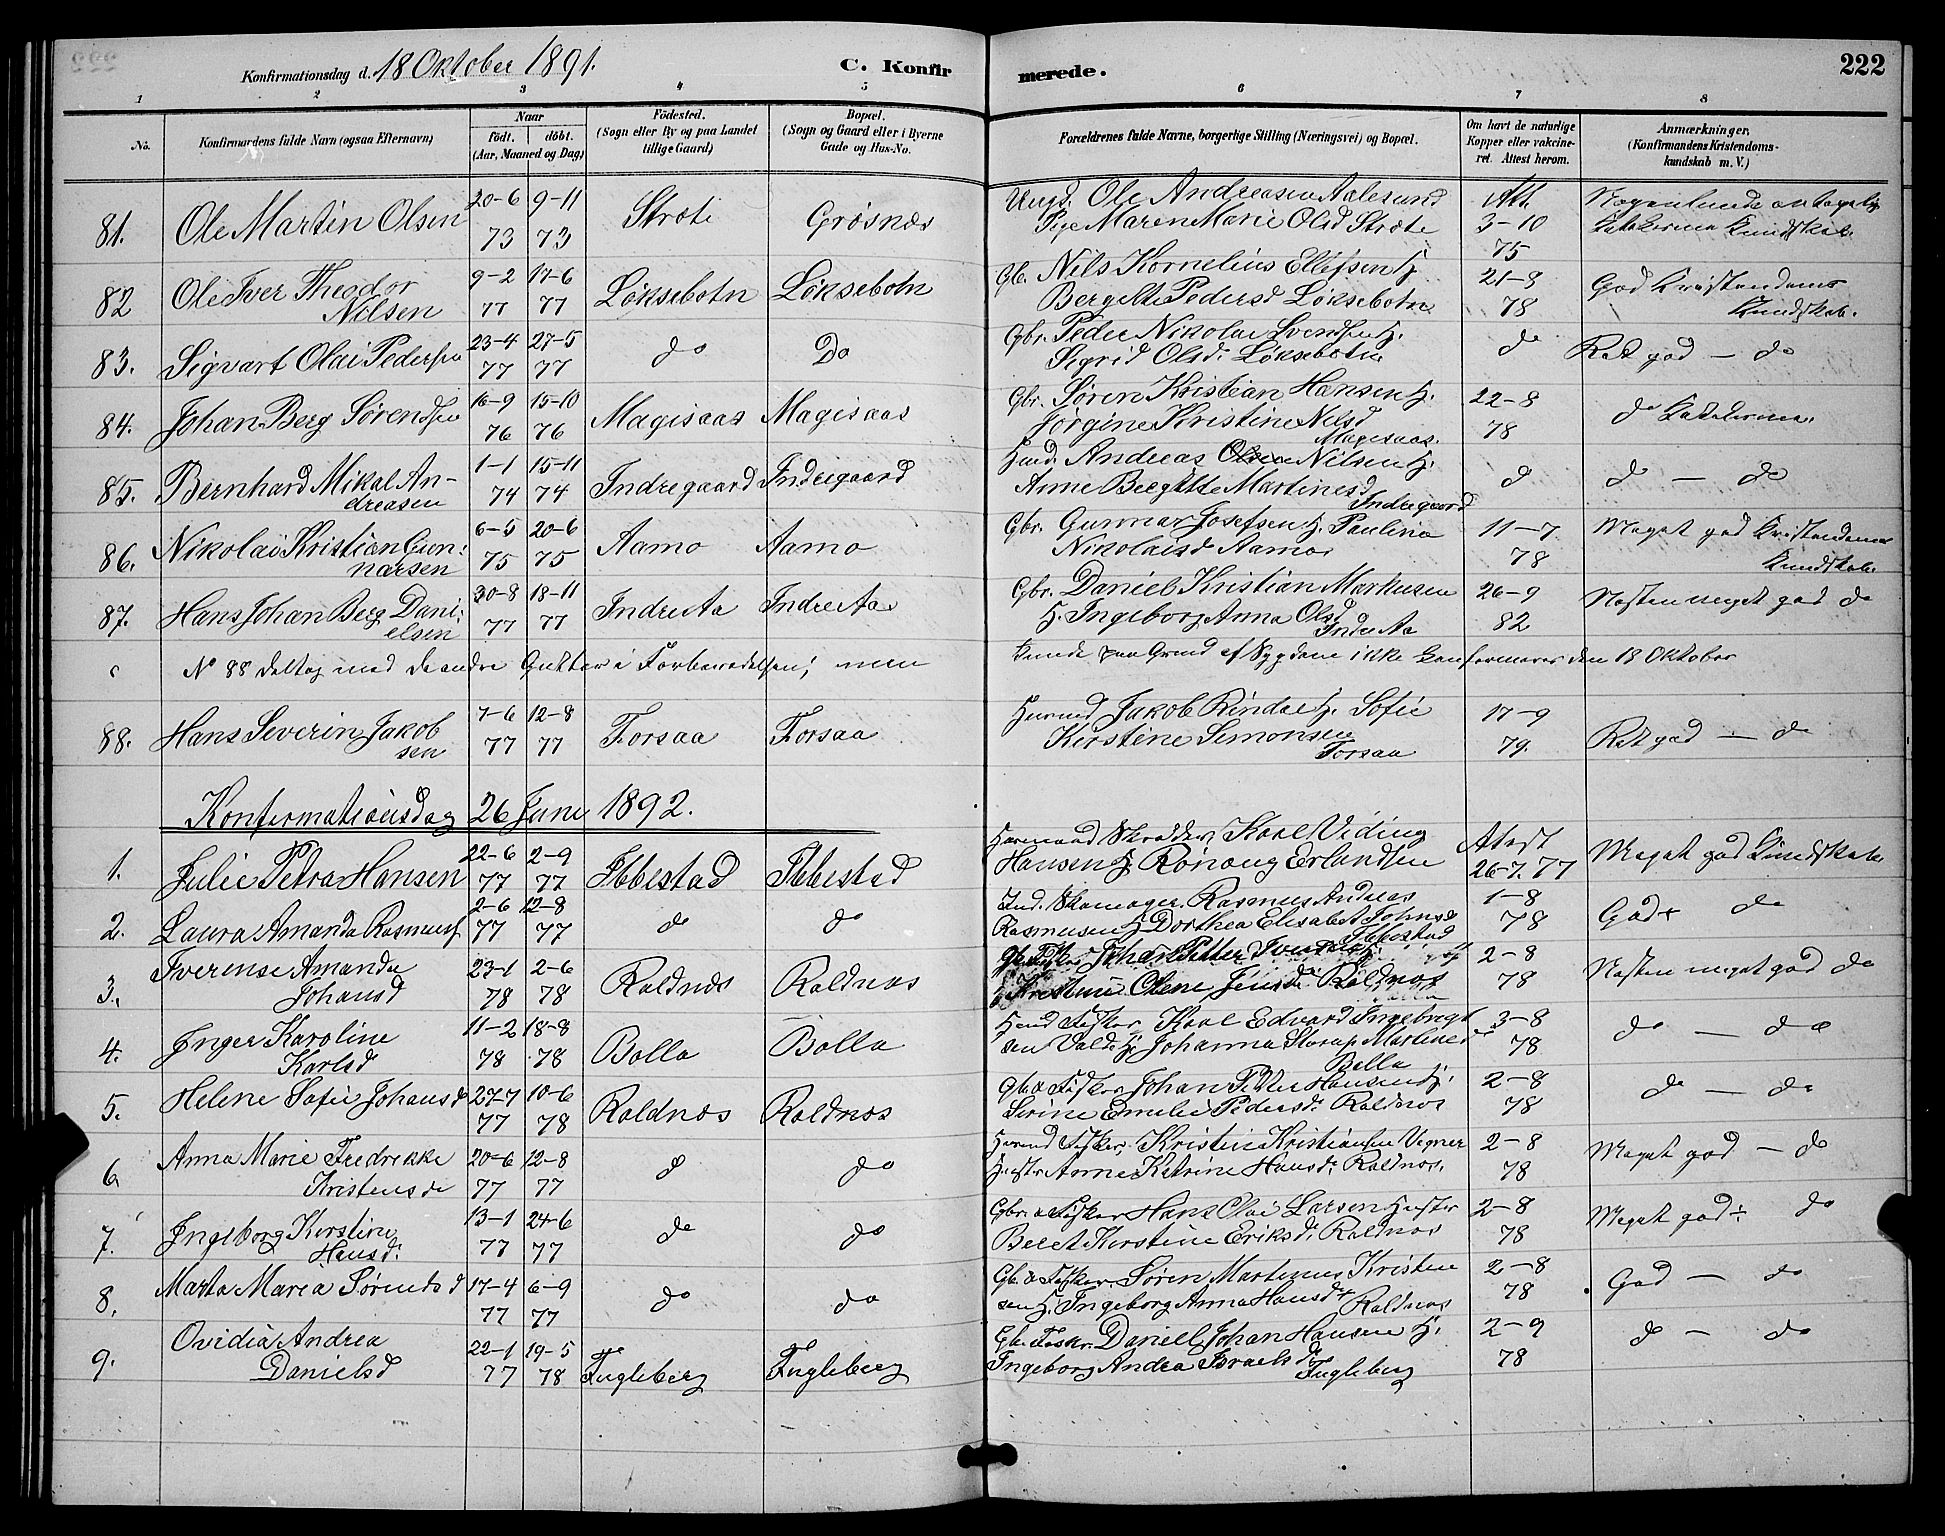 222
Konfirmationsdag d. 18 Oktober 1891.
C. Konfirmerede.
1 2 3 4 5 6 7 8
No.
Konfirmandens fulde Navn (ogsaa Efternavn)
Naar
födt. döbt.
(Aar, Maaned og Dag)
Födested.
(Sogn eller By og paa Landet
tillige Gaard)
Bopæl.
(Sogn og Gaard eller i Byerne
Gade og Hus-No.
Forældrenes fulde Navne, borgerlige Stilling (Næringsvei) og Bopæl.
Om havt de naturlige
Kopper eller vakcine-
ret. Attest herom.
Anmærkninger,
(Konfirmandens Kristendoms-
kundskab m. V.)
81. Ole Martin Olsen 20-6 73 9-11 73 Strøte Grøsnæs
Ungk. Ole Andreasen Aalesund
Pige Maren Marie Olsd Strøte
Att. 3-10 75
82 Ole Iver Theodor
Nilsen 9-2 77 17-6 77 Løksebotn Løksebotn
Gbr. Nils Kornelius Ellefsen H.
Bergitte Pedersd Løksebotn
21-8 78 God Kristendoms
Kundskab.
83. Sigvart Olai Pedersen 23-4 77 27-5 77 do Do
Gbr. Peder Nikolai Svendsen H.
Sigrid Olsd. Løksebotn
do Ret god — do
84. Johan Berg Sørensen 16-9 76 15-10 76 Magisaas Magisaas
Gbr. Søren Kristian Hansen H.
Jørgine Kristine Nilsd
Magisaas.
22-8 78 do
85. Bernhard Mikal An-
dreasen 1-1 74 15-11 74 Indregaard Indregaard
Husd. Andreas Nilsen H.
Anne Bergitte Martinesd
Indregaard
d d — do
86. Nikolai Kristian Gun-
narsen 6-5 75 20-6 75 Aamo Aamo
Gbr. Gunnar Josefsen H. Pauline
Nikolaisd Aamo.
11-7 78 Meget god Kristendoms
Kundskab.
87. Hans Johan Berg Dani-
elsen 30-8 77 18-11 77 Indre Aa Indre Aa
Gbr. Daniel Kristian Markusen
H. Ingeborg Anna Olsd
Indre Aa
26-9 82 Næsten meget god do
No 88 deltog med de andre Gutter i Forberedelsen; men
kunde paa Grund af Sygdom ikke konfirmeres den 18 Oktober
88. Hans Severin Jakob
sen 7-6 77 12-8 77 Forsaa Forsaa
Jakob Rindal H. Sofie
Kirstine Simonsen
Forsaa
17-9 79. Ret god — do
Konfirmationsdag 26 Juni 1892.
1. Julie Petra Hansen 22-6 77 2-9 77 Ibbestad Ibbestad
Husmand Skrædder, Karl Viding
Hansen H. Ronaug Erlandsen
Attest 26-7. 77 Meget god Kundskab.
2. Laura Amanda Rasmusd 2-6 77 12-8 77 do do
Ind. Skomager. Rasmus Andreas
Rasmusen H Dorthea Elisabet Johnsd
Ibbestad
1-8 78 God + do
3. Iverense Amanda
Johansd 23-1 78 2-6 78 Roldnæs Roldnæs
Johan Petter Iversen
Kristine Olene Jensd. Roldnæs
2-8 78 Næsten meget god do
4. Inger Karoline
Karlsd 11-2 78 18-8 78 Bolla Bolla
Husmd Fisker. Karl Edvard Ingebrigt
sen Vold H. Johanna Martinesd
Bolla
3-8 78 do — do
5. Helene Sofie Johansd 27-7 77 10-6 78 Roldnæs Roldnæs
Gbr & Fisker Johan Petter Hansen H.
Serine Emilie Pedersd. Roldnæs
2-8 78 do — do
6. Anna Marie Fredrikke
Kristensd 20-6 77 12-8 77 d do
Husmd Fisker. Kristen Kristiansen Vegner
Hustr Anne Katrine Hansd. Roldnæs.
2-8 78 Meget god — do
7. Ingeborg Kirstine
Hansd. 13-1 77 24-6 77 do do
Gbr. & Fisker Hans Olai Larsen Hustr
Beret Kirstine Eriksd. Roldnæs
2-8 78 Meget god ÷ do
8. Marta Maria Sørensd 17-4 77 6-9 77 do do
Gbr & Fisker. Søren Martinus Kristen
sen H. Ingeborg Anna Hansd. Roldnæs
2-8 78 God — do
9. Ovidia Andrea
Danielsd 22-1 77 19-5 78 Fugleberg Fugleberg
Gbr. Fisker. Daniel Johan Hansen H.
Ingeborg Andrea Israelsd
Fugleberg
2-9 78 do — do